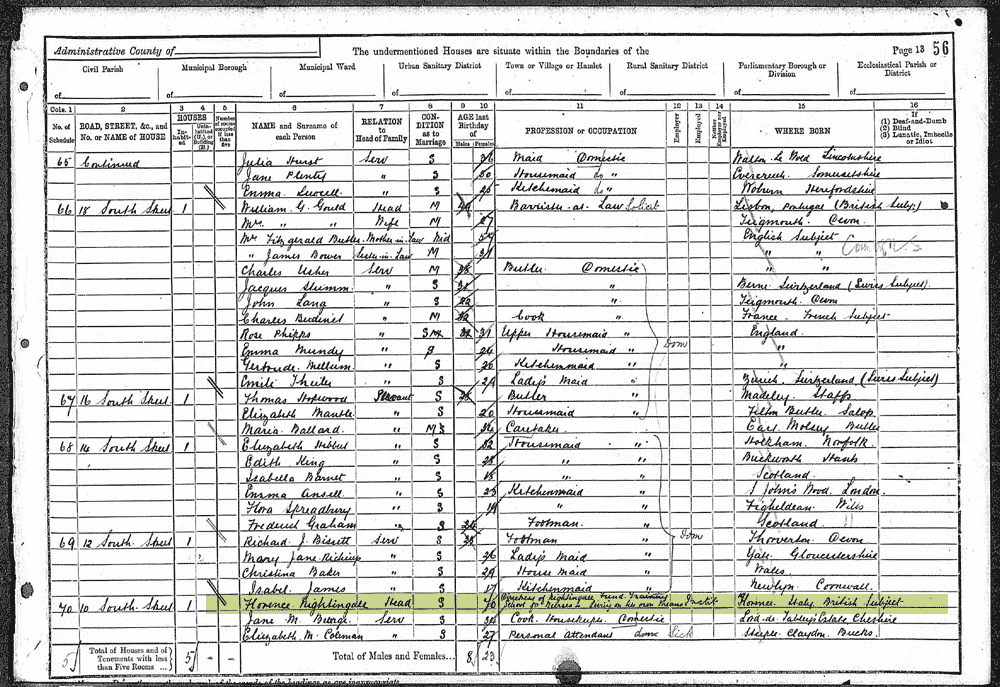 Administrative County of
The undermentioned Houses are situate within the Boundaries of the
Page 13 56
Civil Parish
Municipal Borough
Municipal Ward
Urban Sanitary District
Town or Village or Hamlet
Rural Sanitary District
Parliamentary Borough or Division
Ecclesiastical Parish or District
of of of of of of of of
Cols. 1 2 3 4 5 6 7 8 9 10 11 12 13 14 15 16
No. of Schedule
ROAD, STREET, &c., and No. or NAME of HOUSE
HOUSES
Inhabited
Uninhabited (U.), or Building (B.)
Number of rooms occupied if less than five
NAME and Surname of each Person
RELATION to Head of Family
CONDITION as to Marriage
AGE last Birthday of
Males Females
PROFESSION or OCCUPATION
Employer
Employed
Neither Employer nor Employed
WHERE BORN
If (1) Deaf-and-Dumb (2) Blind (3) Lunatic, Imbecile or Idiot
65 Continued Julia Hurst Serv S 36 Maid Domestic Lincolnshire
Jane " S 30 Housemaid do " Evercreech Somersetshire
Emma " S 25 Kitchenmaid do " Woburn
66 18 South Street 1 William G. Gould Head M Barrister-at-Law Lisbon, Portugal (British Subj.)
Mrs " " Wife M 27 Teignmouth Devon
Mrs Fitzgerald Butler Mother-in-Law Wid English Subject
" James Bower Sister-in-Law M 31 " "
Charles Usher Serv M Butler Domestic " "
Jacques " S " Berne Switzerland (Swiss Subject)
John Lang " S " Teignmouth Devon
Charles " M Cook " France French Subject
Rose Phipps " S 31 Upper Housemaid " England
Dom
Emma Mundy " S 24 Housemaid " "
Gertrude " S 20 Kitchenmaid "
Emile " S 29 Lady's Maid " Zurich Switzerland (Swiss Subject)
67 16 South Street 1 Thomas Servant S Butler " Madeley Staffs
Elizabeth " S 20 Housemaid " Salop
Maria Ballard " Caretaker
68 14 South Street 1 Elizabeth Hibbut " S 32 Housemaid " Norfolk
Edith King " S 28 " " Buckworth Hants
Isabella Barnet " S 18 " " Scotland
Emma Ansell " S 23 Kitchenmaid " S Johns Wood London
Flora Spreadbury " S 19 " " Figheldean Wilts
Frederick Graham " S Footman " Scotland
69 12 South Street 1 Richard J. Bissett Serv S 28 Footman " Dom Thoverton Devon
Mary Jane " S 26 Lady's Maid " Yate Gloucestershire
Christina Baker " S 29 House Maid " Wales
Isabel James " S 17 Kitchenmaid " Newlyn Cornwall
70 10 South Street 1 Florence Nightingale Head S 70 Nightingale Fund Training School for Nurses Living on her own Means Florence Italy British Subject
Jane M. Serv S Cook Housekeeper Domestic Lord de Tabley's Estate Cheshire
Elizabeth M. Coleman " S 27 Personal Attendant Sick Steeple Claydon Bucks.
5 Total of Houses and of Tenements with less than Five Rooms ... 5 - -
Total of Males and Females... 8 23